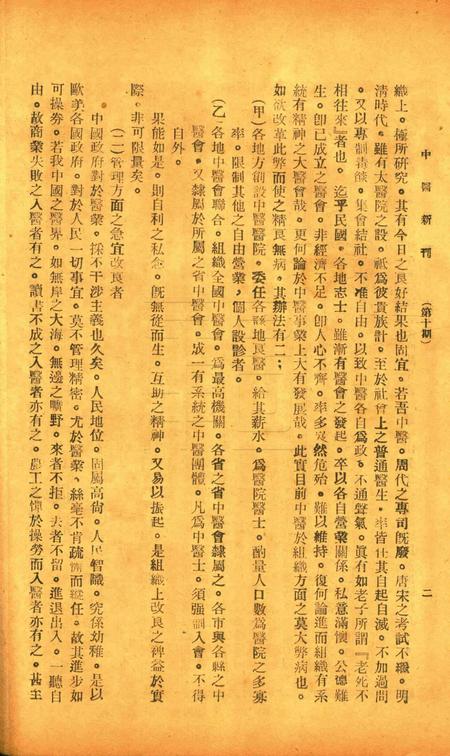 中醫新刊　（第十期）　二
織上。極所研究。其有今日之良好結果也固宜。若吾中醫。周代之專司旣廢。唐宋之考試不繼。明
淸時代。雖有太醫院之設。祇爲彼貴族計。至於社會上之普通醫生。率皆任其自起自滅。不加過問
。又以專制毒燄。集會結社。不准自由。以致中醫各自爲政。不通聲氣。眞有如老子所謂『老死不
相往來』者也。迄乎民國。各地志士。雖漸有醫會之發起。卒以各自營業關係。私意滿懷。公德難
生。卽已成立之醫會。非經濟不足。卽人心不齊。率多奄然危殆。難以維持。復何論進而組織有系
統有精神之大醫會哉。更何論於中醫事業上大有發展哉。此實目前中醫於組織方面之莫大弊病也。
如欲改革此弊而使之精良無病。其辦法有二；
(甲)各地方創設中醫醫院。委任各縣地良醫。給其薪水。爲醫院醫士。酌量人口數爲醫院之多寡
率。限制其他之自由營業。個人設診者。
(乙)各地中醫會聯合。組織全國中醫會。爲最高機關。各省之省中醫會隸屬之。各市與各縣之中
醫會。又隸屬於所屬之省中醫會。成一有系統之中醫團體。凡爲中醫士。須强制入會。不得
自外。
果能如是。則自利之私念。旣無從而生。互助之精神。又易以振起。是組織上改良之裨益於實
際。非可限量矣。
(二)管理方面之急宜改良者
中國政府對於醫業。採不干涉主義也久矣。人民地位。固屬高尙。人民智識。究係幼稚。是以
歐美各國政府。對於人民一切事宜。莫不管理精密。尤於醫業。絲毫不肯疏懈而縱任。故其進步如
可操劵。若我中國之醫界。如無岸之大海。無邊之曠野。來者不拒。去者不留。進退出入。一聽自
由。故商業失敗之入醫者有之。讀書不成之入醫者亦有之。農工之憚於操勞而入醫者亦有之。甚至